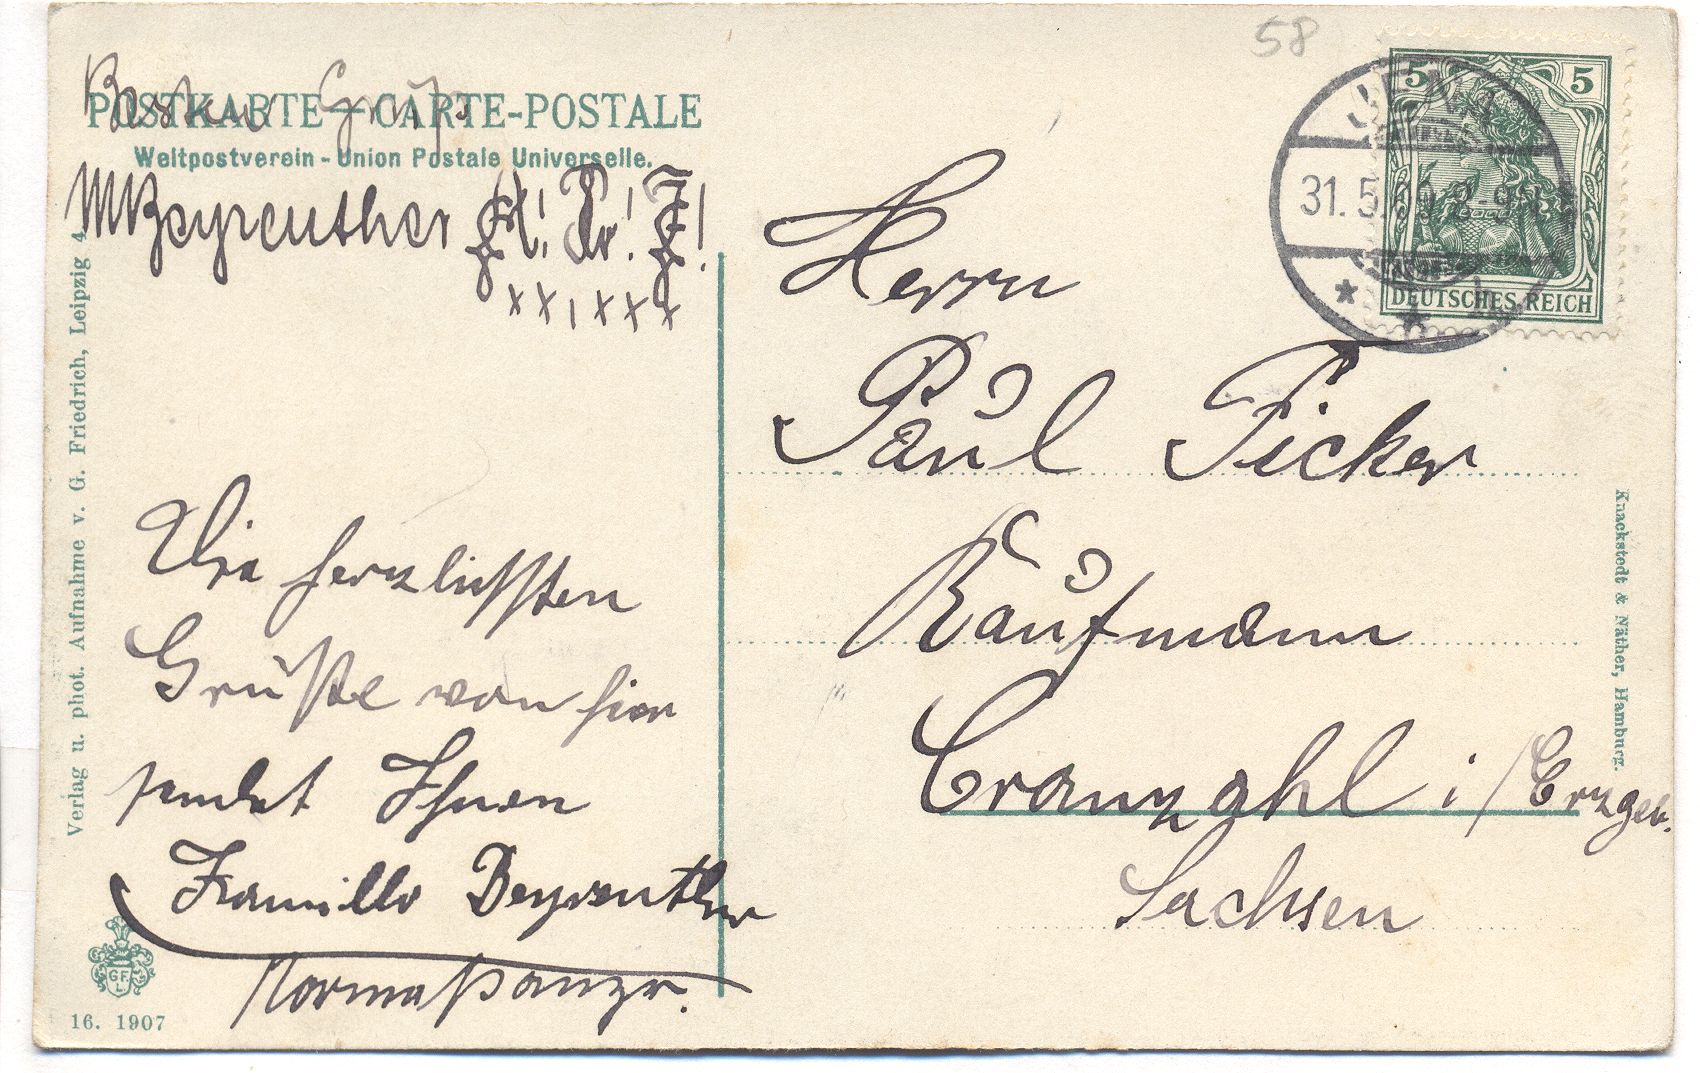 58
Besten Gruß
POSTKARTE – CARTE-POSTALE
Weltpostverein - Union Postale Universelle.
Beyreuther
xx, xxx
Verlag u. phot. Aufnahme v. G. Friedrich, Leipzig 4.
Die herzlichsten
Grüße von hier
sendet Ihnen
Beyreuther
Norma
G.F.
L.
16. 1907
5 5
DEUTSCHES REICH
31. 5.
Herrn
Paul Ficker
Kaufmann
Cranzahl i/Erzgeb.
Sachsen
Knackstedt & Näther, Hamburg.